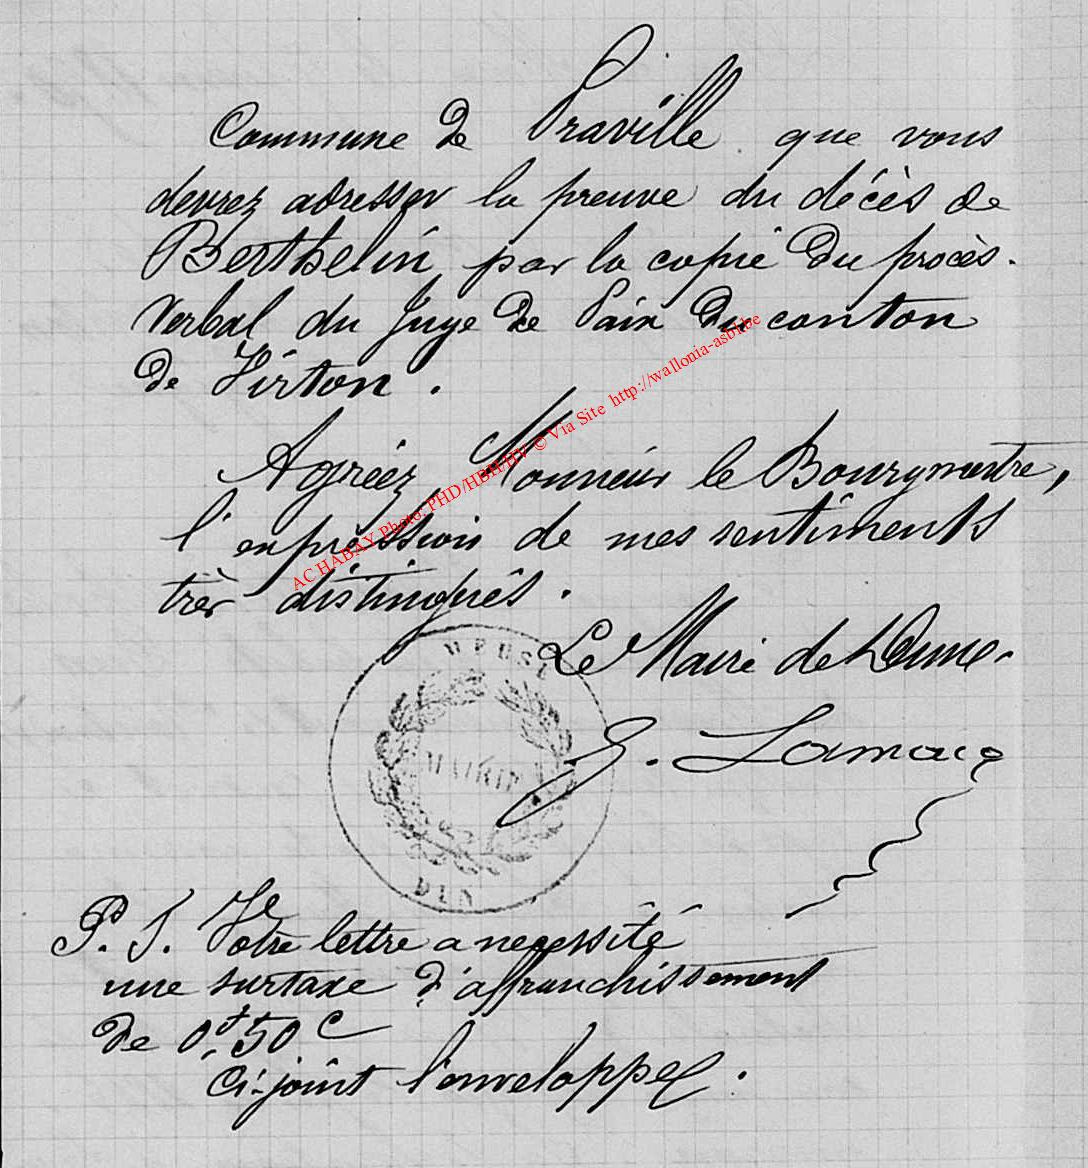 Commune de Praville que vous
devrez adresser la preuve du décès de
Berthelin, par la copie du procès-
Verbal du Juge de Paix du canton
de Virton.
Agréez, Monsieur le Bourgmestre,
l'expression de mes sentiments
très distingués.
Le Maire de Dun
MEUSE
MAIRIE
DUN
P. S. Votre lettre a necessité
une surtaxe d'affranchissement
de 0f,50c
Ci-joint l'enveloppe.
AC HABAY Photo: PHD/HBH/HV © Via Site http://wallonia-asbl.be